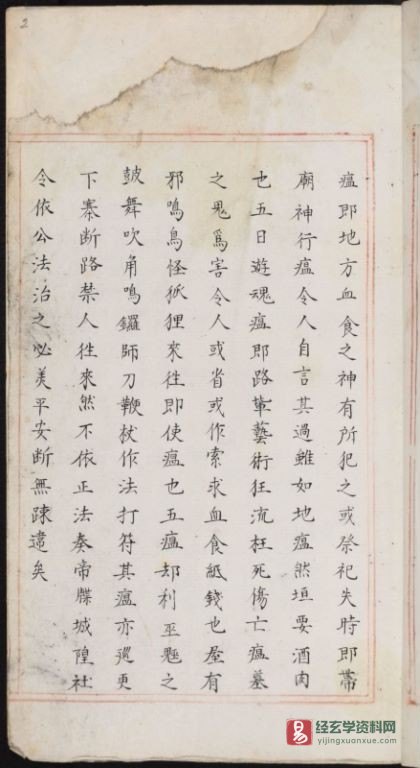 2
瘟即地方血食之神有所犯之或祭祀失時即帶
廟神行瘟令人自言其過雖如地瘟然垣要酒肉
也五日遊魂瘟即路軰藝術狂流枉死傷亡瘟墓
之鬼爲害令人或省或作索求血食紙錢也屋有
邪鳴鳥怪狐狸來徃即使瘟也五瘟却利巫覡之
皷舞吹角鳴鑼師刀鞭杖作法打符其瘟亦遞更
下寨断路禁人徃來然不依正法奏帝牒城隍社
令依公法治之必美平安断無踈違矣
易
经玄学资料网
yijingxuanxue.com